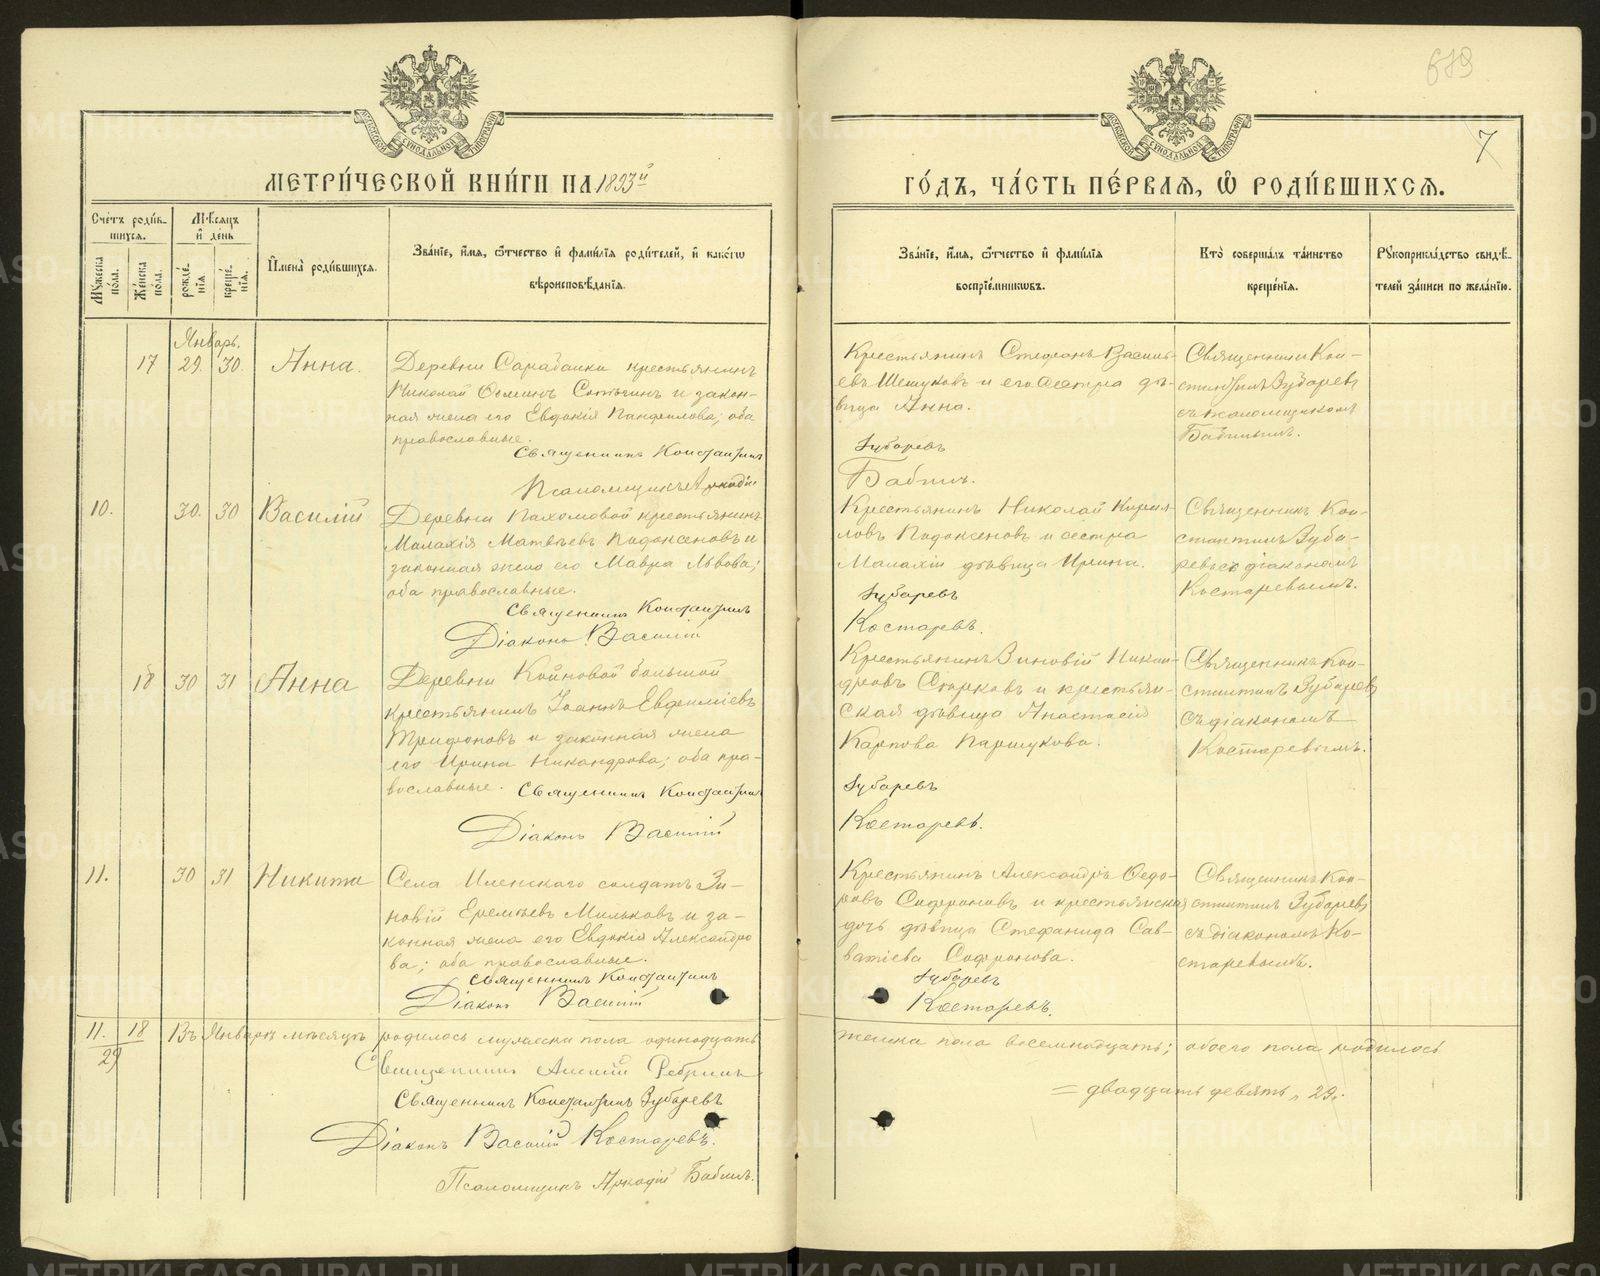 МОСКОВСКОЙ СѴНОДАЛЬНОЙ ТИПОГРАФІИ
МОСКОВСКОЙ СѴНОДАЛЬНОЙ ТИПОГРАФІИ
689
7
МЕТРИ́ЧЕСКОЙ КНИ́ГИ НА 1893й
ГО́ДЪ, ЧА́СТЬ ПЕ́РВАЯ, Ѽ РОДИ́ВШИХСЯ.
Сче́тъ роди́в-
шихся.
Мѣ́сяцъ
и҆ де́нь
Му́жеска по́ла.
Же́нска по́ла.
рожде́нїя
креще́нїя.
И҆мена̀ роди́вшихся.
Зва́нїе, и҆́мя, ѻ҆́тчество и҆ фами́лїя роди́телей, и҆ како́гѡ
вѣроисповѣ́данїя.
Зва́нїе, и҆́мя, ѻ҆́тчество и҆ фами́лїя
воспрїе́мникѡвъ.
Кто̀ соверша́лъ та́инство
креще́нїя.
Рукоприкла́дство свидѣ́-
телей за́писи по жела́нїю.
Январь.
17 29. 30. Анна.
Деревни крестьянин
Николай и закон-
ная жена его Евдокія Панфилова; оба
православные.
Священникъ Константинъ
Псаломщикъ Аркадій
Крестьянинъ Стефанъ Василь-
евъ Шешуковъ и его сестра дѣ-
вица Анна.
Зубаревъ
Бабинъ.
Священникъ Кон-
стантинъ Зубаревъ
съ псаломщикомъ
Бабинымъ.
10. 30. 30 Василій
Деревни Пахомовой крестьянинъ
Малахія Матвѣевъ и
законная жена его Мавра Львова;
оба православные.
Священникъ Константинъ
Діаконъ Василій
Крестьянинъ Николай Кирил-
ловъ и сестра
Малахіи дѣвица Ирина.
Зубаревъ
Костаревъ.
Священникъ Кон-
стантинъ Зуба-
ревъ съ діакономъ
Костаревымъ.
18 30 31 Анна
Деревни Койновой большой
крестьянинъ Іоаннъ Евфиміевъ
Трифоновъ и законная жена
его Ирина Никандрова; оба пра-
вославные. Священникъ Константинъ
Діаконъ Василій
Крестьянинъ Зиновій Никан-
дровъ и крестьян-
ская дѣвица Анастасія
Карпова Паршукова.
Зубаревъ
Костаревъ.
Священникъ Кон-
стантинъ Зубаревъ
съ діакономъ
Костаревымъ.
11. 30 31 Никита
Села Иленскаго солдатъ Зи-
новій Еремѣевъ Мильковъ и за-
конная жена его Евдокія Александро
ва; оба православные.
Священникъ Константинъ
Діаконъ Василій
Крестьянинъ Александръ Ѳедо-
ровъ Софроновъ и крестьянская
дочь дѣвица Стефанида Сав-
ватіева Софронова.
Зубаревъ
Костаревъ.
Священникъ Кон-
стантинъ Зубаревъ
съ діакономъ Ко-
старевымъ.
11. 18 Въ Январѣ мѣсяцѣ родилось мужеска пола одинадцать
женска пола восемнадцать; обоего пола родилось
29
= двадцать девять, 29.
Священникъ
Священникъ Константинъ Зубаревъ
Діаконъ Василій Костаревъ.
Псаломщикъ Аркадій Бабинъ.
METRIKI.GASO-URAL.RU